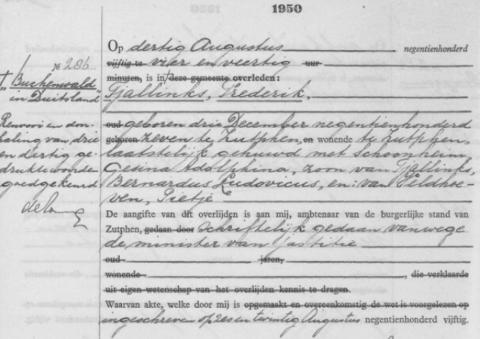 1950
No 286.
Op dertig Augustus negentienhonderd
vijftig te vier en veertig uur
minuten, is in † deze gemeente overleden:
Tjallinks, Frederik,
† "Buchenwald"
in Duitsland
oud geboren drie December negentienhonderd
geboren zeven te Zutphen, en wonende te Zutphen,
laatstelijk gehuwd met Schoonheim
Gesina Adolphina, zoon van Tjallinks,
Bernardus Ludovicus, en: van Veldhoe-
ven, Grietje
Renvooi en door-
haling van drie
en dertig ge-
drukte woorden
goedgekeurd
De aangifte van dit overlijden is aan mij, ambtenaar van de burgerlijke stand van
Zutphen, gedaan door schriftelijk gedaan vanwege
de minister van Justitie
oud jaren,
wonende , die verklaarde
uit eigen wetenschap van het overlijden kennis te dragen.
Waarvan akte, welke door mij is opgemaakt en overeenkomstig de wet is voorgelezen op
ingeschreven op zes en twintig Augustus negentienhonderd vijftig.